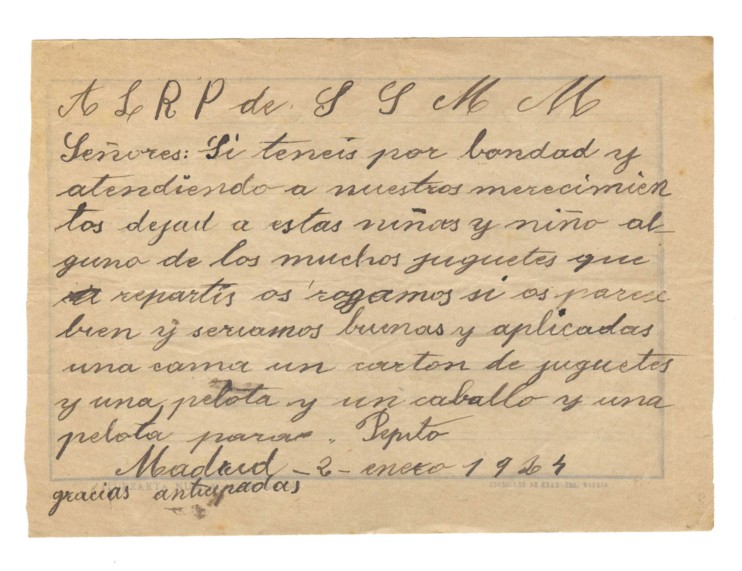 A L R P de. S S M M
Señores: Si teneis por bondad y
atendiendo a nuestros merecimien
tos dejad a estas niñas y niño al-
guno de los muchos juguetes que
repartis os rogamos si os parece
bien y seriamos buenas y aplicadas
una cama un carton de juguetes
y una pelota y un caballo y una
pelota para Pepito
Madrid - 2 - enero 19
gracias anticipadas